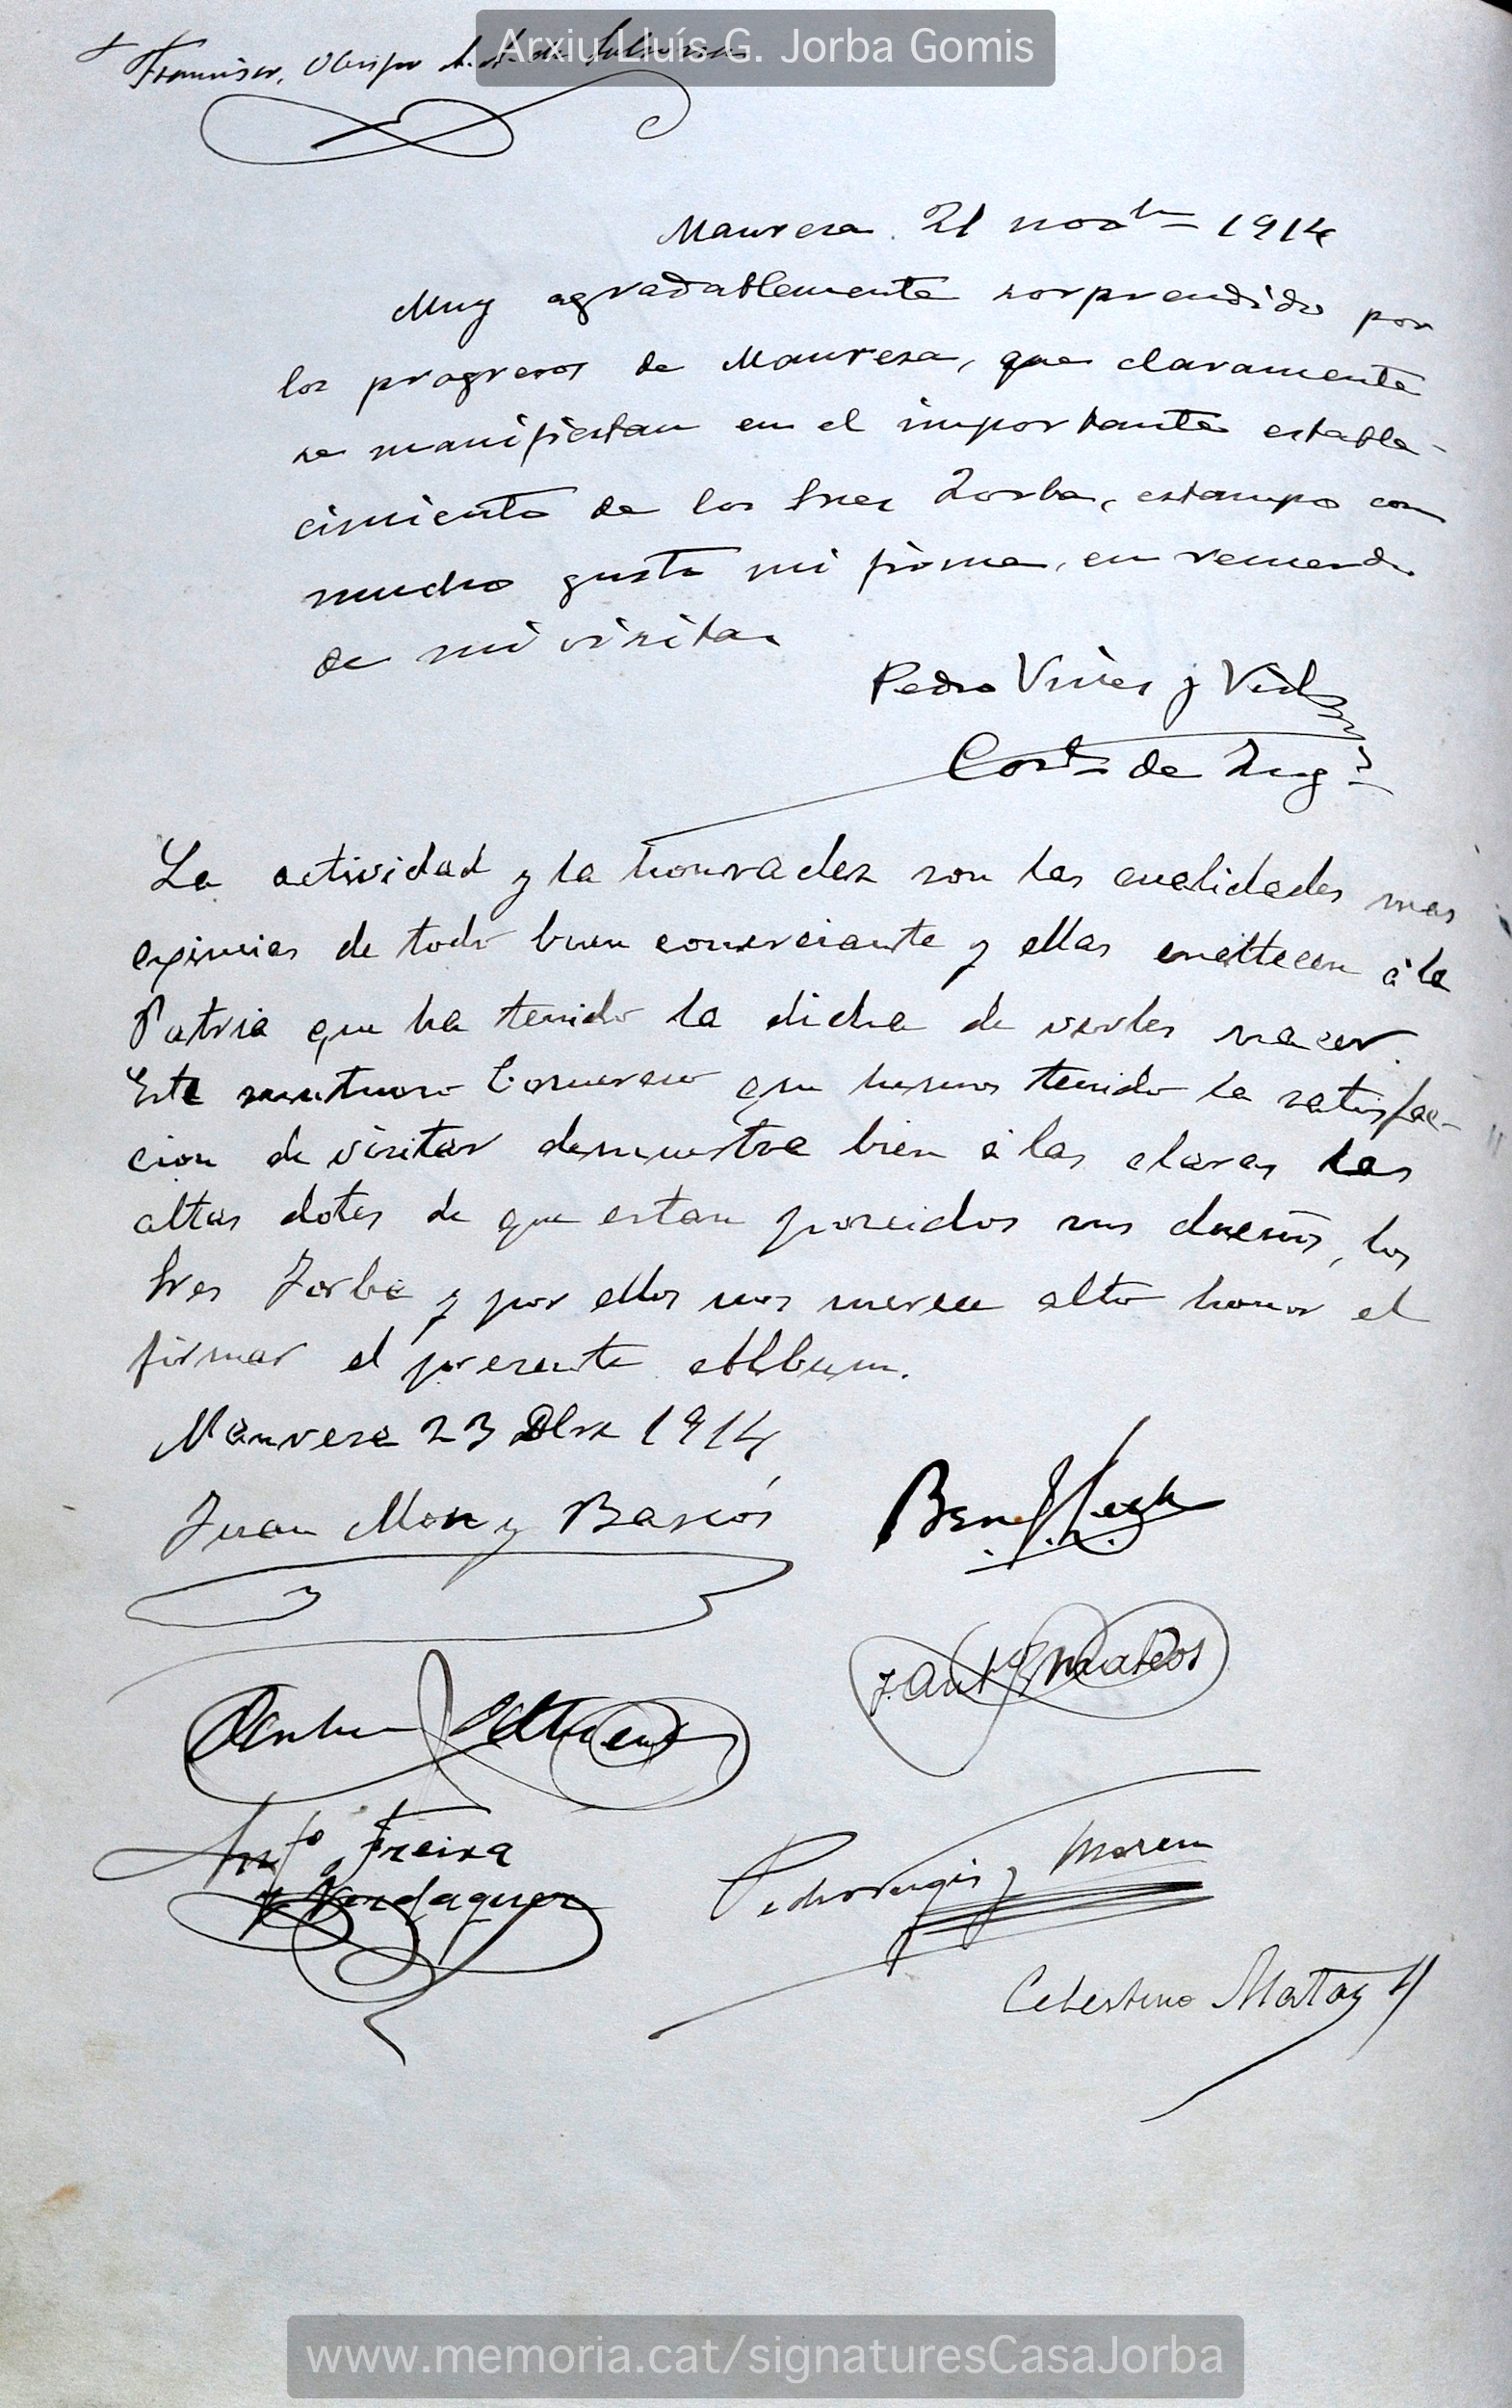 Arxiu Lluís G. Jorba Gomis
+ Francisco, Obispo A. A. de
Manresa 21 novbre 1914
Muy agradablemente sorprendido por
los progresos de Manresa, que claramente
se manifiestan en el importante estable-
cimiento de los Sres Jorba, estampo con
mucho gusto mi firma, en recuerdo
de mi visita
Pedro Vives y Vich
Corl de Ings
La actividad y la honradez son las cualidades mas
eximias de todo buen comerciante y ellas enaltecen á la
Patria que ha tenido la dicha de verles nacer.
Este suntuoso Comercio que hemos tenido la satisfac-
cion de visitar demuestra bien á las claras las
altas dotes de que estan poseidos sus dueños, los
Sres Jorba y por ellos nos merece alto honor el
firmar el presente Album.
Manresa 23 Dbre 1914
Juan Mon y Bascós
J. Anto Mateos
Anto Freixa
y Verdaguer
Pedro y Moreu
Celestino Matas
www.memoria.cat/signaturesCasaJorba